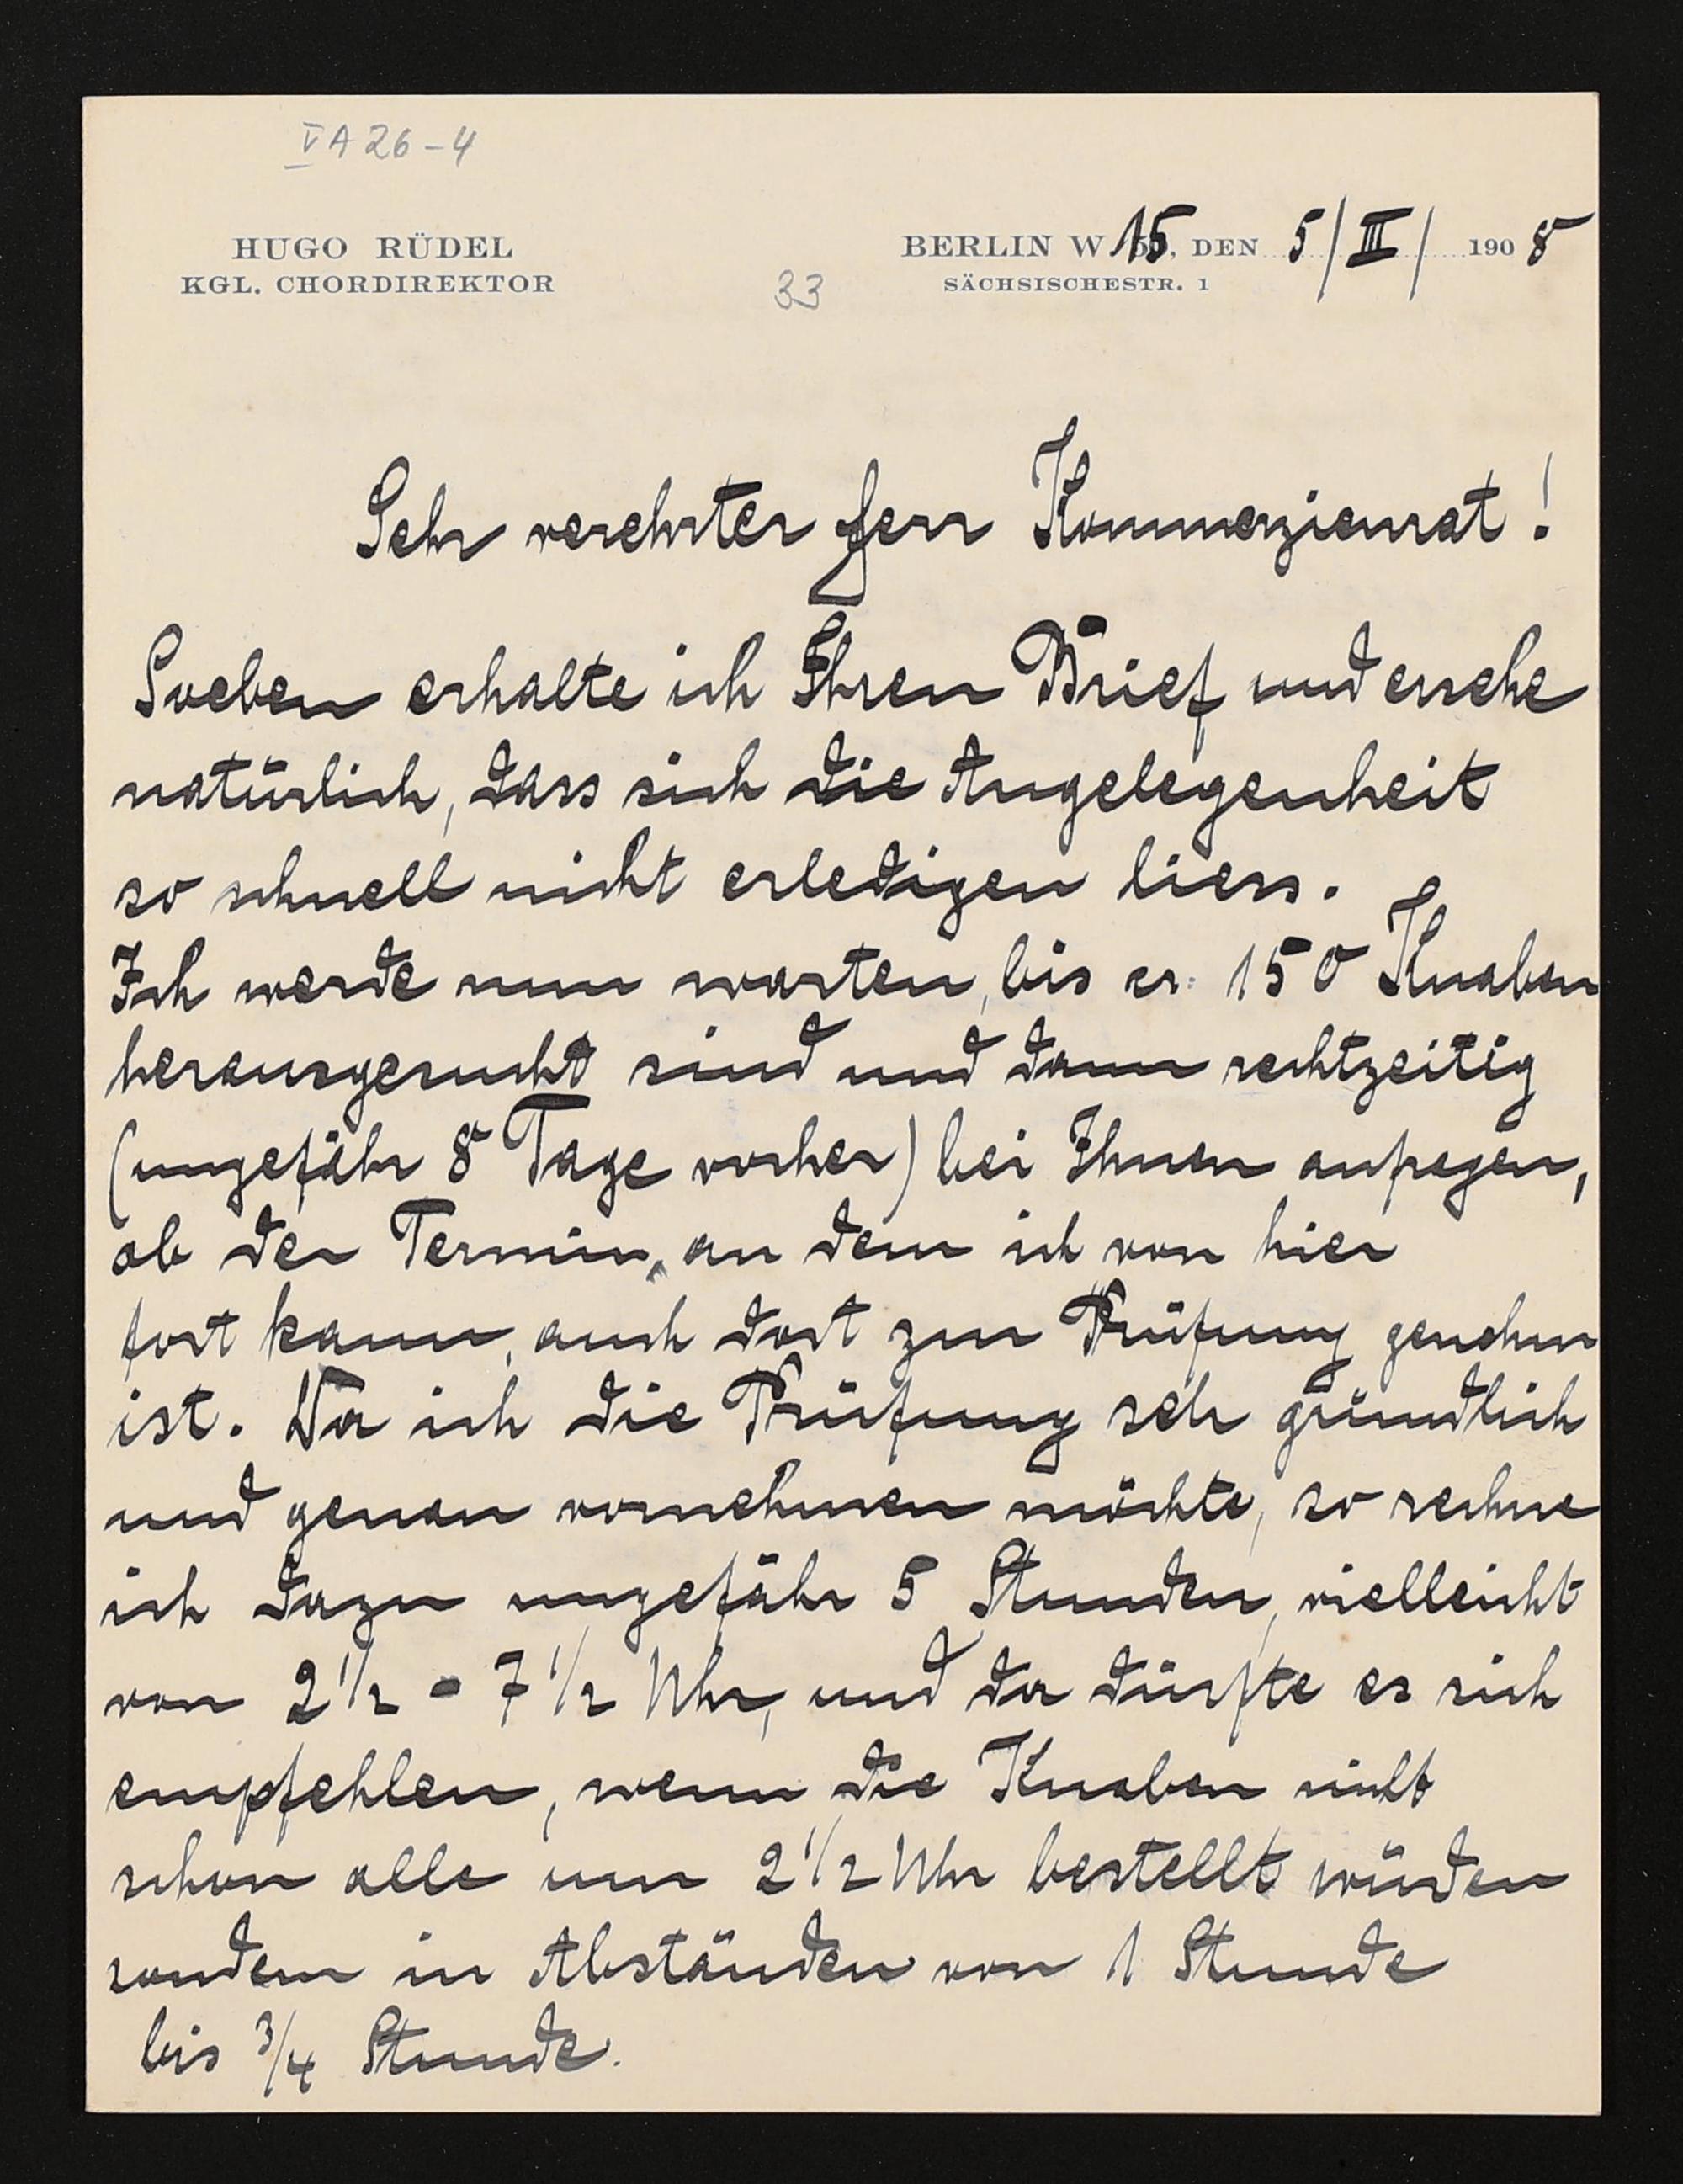 V A 26-4
HUGO RÜDEL
KGL. CHORDIREKTOR
33
BERLIN W 15, DEN 5/III/ 1908
SÄCHSISCHESTR. 1
Sehr verehrter Herr Kommerzienrat!
Soeben erhalte ich Ihren Brief und ersehe
natürlich, dass sich die Angelegenheit
so schnell nicht erledigen liess.
Ich werde nun warten, bis cr. 150 Knaben
herausgesucht sind und dann rechtzeitig
(ungefähr 8 Tage vorher) bei Ihnen anfragen,
ob der Termin, an dem ich von hier
fort kann, auch dort zur Prüfung genehm
ist. Da ich die Prüfung sehr gründlich
und genau vornehmen möchte, so rechne
ich dazu ungefähr 5 Stunden, vielleicht
von 2 1/2 - 7 1/2 Uhr, und da dürfte es sich
empfehlen, wenn die Knaben nicht
schon alle um 2 1/2 Uhr bestellt würden
sondern in Abständen von 1 Stunde
bis 3/4 Stunde.